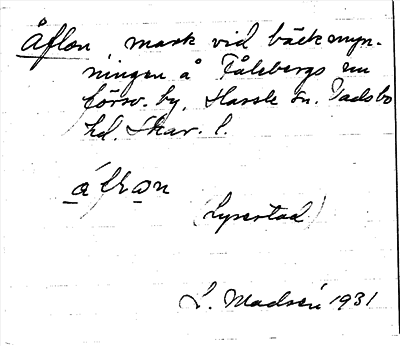 Åflon, mark vid bäckmyn-
ningen å Fålebergs nu
försv. by, Hassle sn. Vadsbo
hd. Skar. l.
(Lyrestad)
L. Madsén 1931